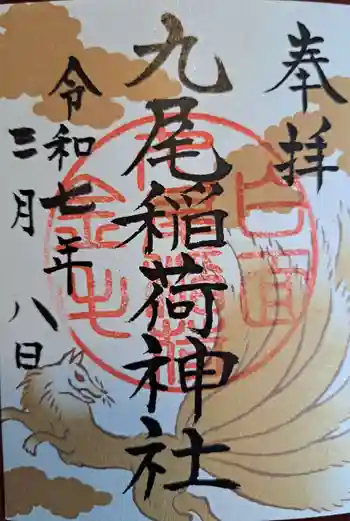 奉拝
九尾稲荷神社
令和七年
三月八日
白面
金毛